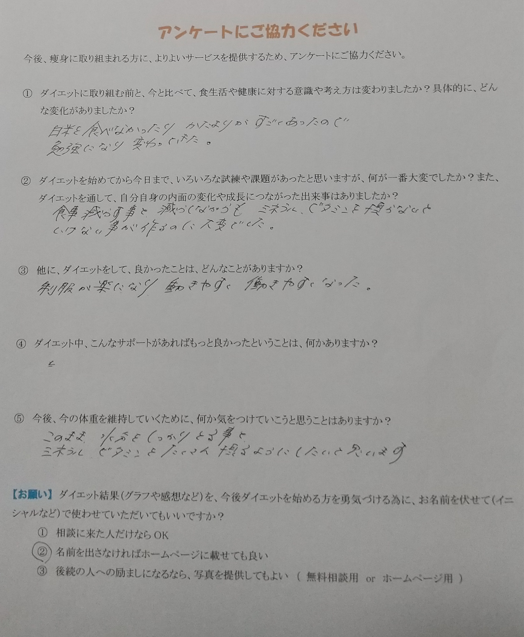 アンケートにご協力ください
今後、痩身に取り組まれる方に、よりよいサービスを提供するため、アンケートにご協力ください。
① ダイエットに取り組む前と、今と比べて、食生活や健康に対する意識や考え方は変わりましたか?具体的に、どん
な変化がありましたか?
白米を食べなかったり かたよりが すごくあったので
勉強になり 変わっていた。
② ダイエットを始めてから今日まで、いろいろな試練や課題があったと思いますが、何が一番大変でしたか?また、
ダイエットを通して、自分自身の内面の変化や成長につながった出来事はありましたか?
食事 減らす事と 減らしながらも ミネラル、ビタミンを摂らないと
いけない事が 作るのに大変でした。
③ 他に、ダイエットをして、良かったことは、どんなことがありますか?
制服が楽になり 動きやすく 働きやすくなった。
④ ダイエット中、こんなサポートがあればもっと良かったということは、何かありますか?
⑤ 今後、今の体重を維持していくために、何か気をつけていこうと思うことはありますか?
このまま 水分をしっかり とる事と
ミネラル ビタミンをたくさん 摂るようにしたいと思います
【お願い】ダイエット結果(グラフや感想など)を、今後ダイエットを始める方を勇気づける為に、お名前を伏せて(イニ
シャルなど)で使わせていただいてもいいですか?
① 相談に来た人だけなら OK
② 名前を出さなければホームページに載せても良い
③ 後続の人への励ましになるなら、写真を提供してもよい ( 無料相談用 or ホームページ用 )